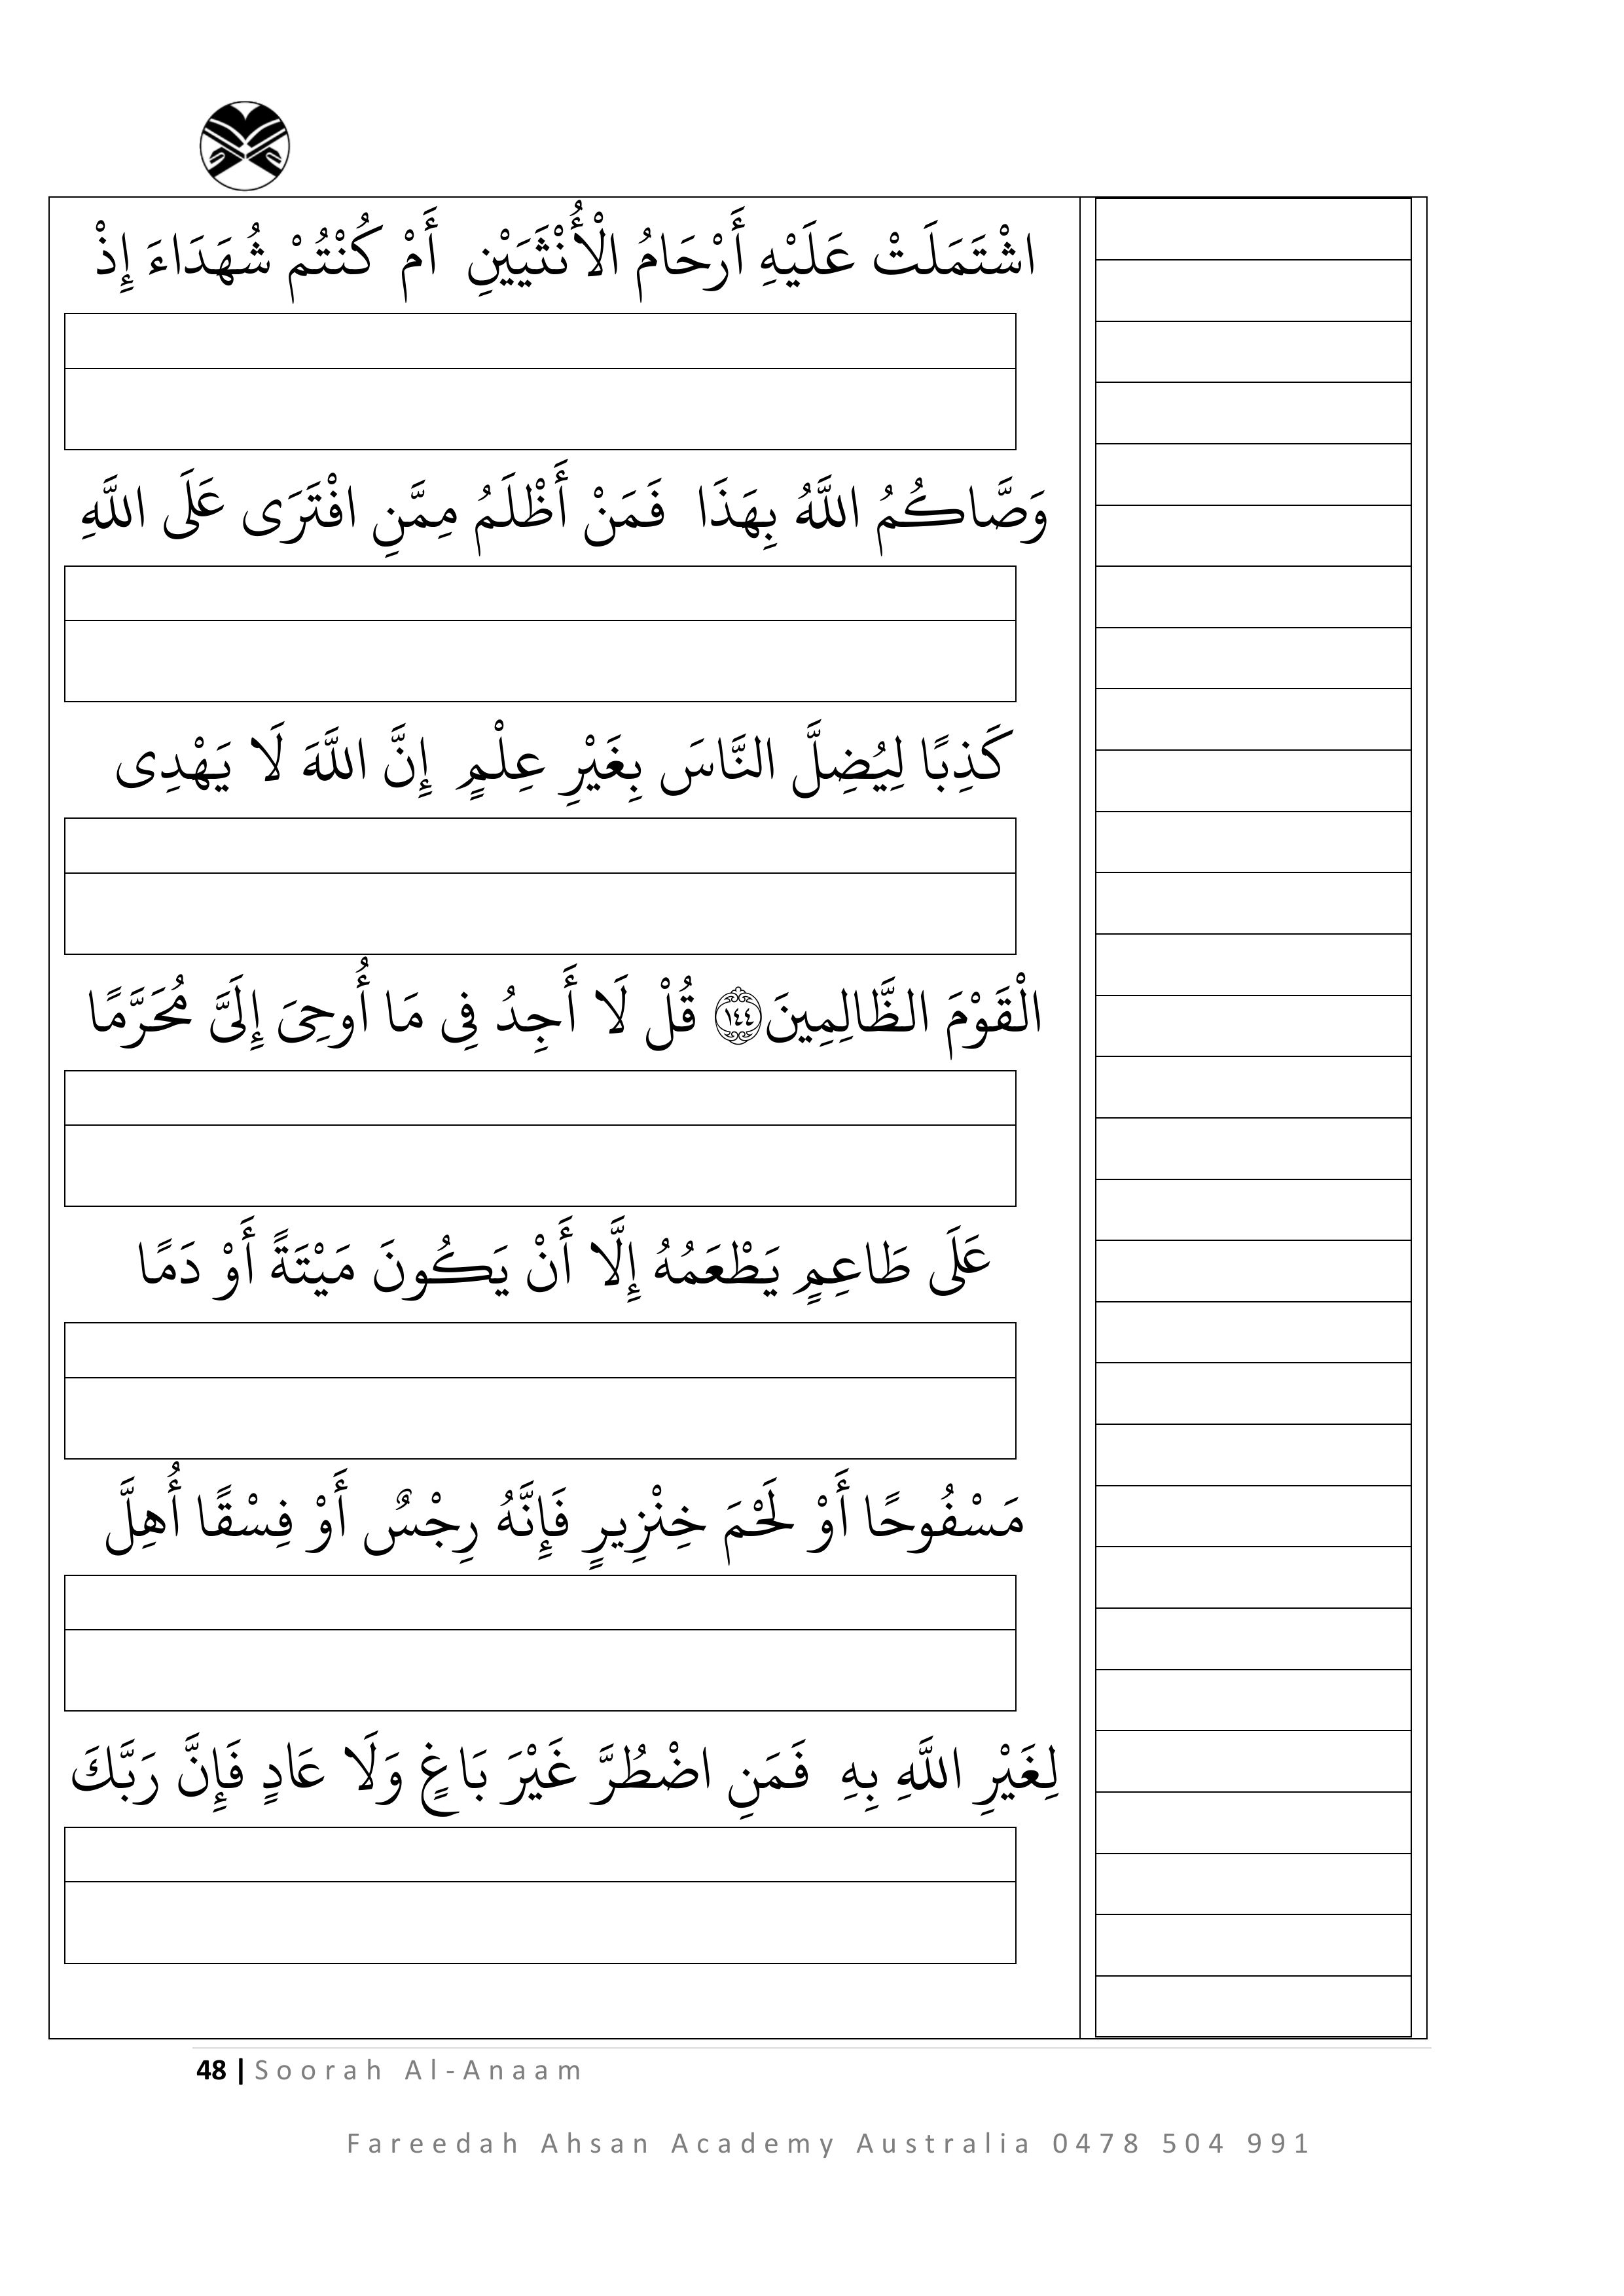 اشْتَمَلَتْ عَلَيْهِ أَرْحَامُ الْأُنْثَيَيْنِ أَمْ كُنْتُمْ شُهَدَاءَ إِذْ
وَصَّاكُمُ اللَّهُ بِهَذَا فَمَنْ أَظْلَمُ مِمَّنِ افْتَرَى عَلَى اللَّهِ
كَذِبًا لِيُضِلَّ النَّاسَ بِغَيْرِ عِلْمٍ إِنَّ اللَّهَ لَا يَهْدِى
الْقَوْمَ الظَّالِمِينَ ﴿١٤٤﴾ قُلْ لَا أَجِدُ فِى مَا أُوحِىَ إِلَىَّ مُحَرَّمًا
عَلَى طَاعِمٍ يَطْعَمُهُ إِلَّا أَنْ يَكُونَ مَيْتَةً أَوْ دَمًا
مَسْفُوحًا أَوْ لَحْمَ خِنْزِيرٍ فَإِنَّهُ رِجْسٌ أَوْ فِسْقًا أُهِلَّ
لِغَيْرِ اللَّهِ بِهِ فَمَنِ اضْطُرَّ غَيْرَ بَاغٍ وَلَا عَادٍ فَإِنَّ رَبَّكَ
48 | Soorah Al-Anaam
Fareedah Ahsan Academy Australia 0478 504 991